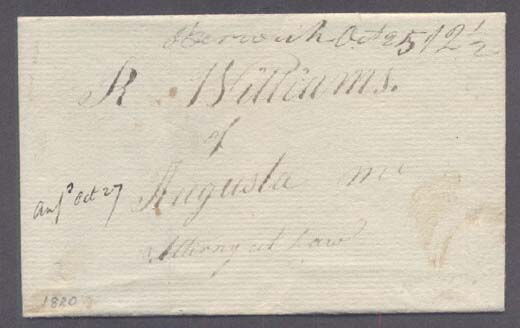 Berwick Oct 25 12½
R. Williams.
of
Augusta me
Attorny at Law
ansd Oct 27
1820